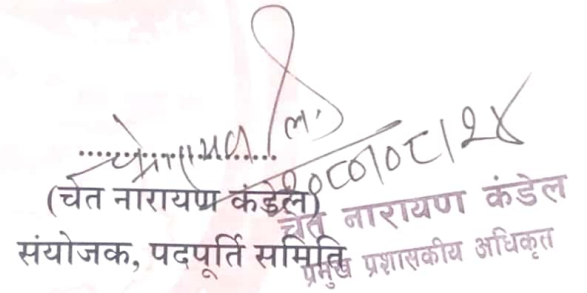 २०८०।०८।२४
(चेत नारायण कंडेल)
संयोजक, पदपूर्ति समिति
चेत नारायण कंडेल
प्रमुख प्रशासकीय अधिकृत